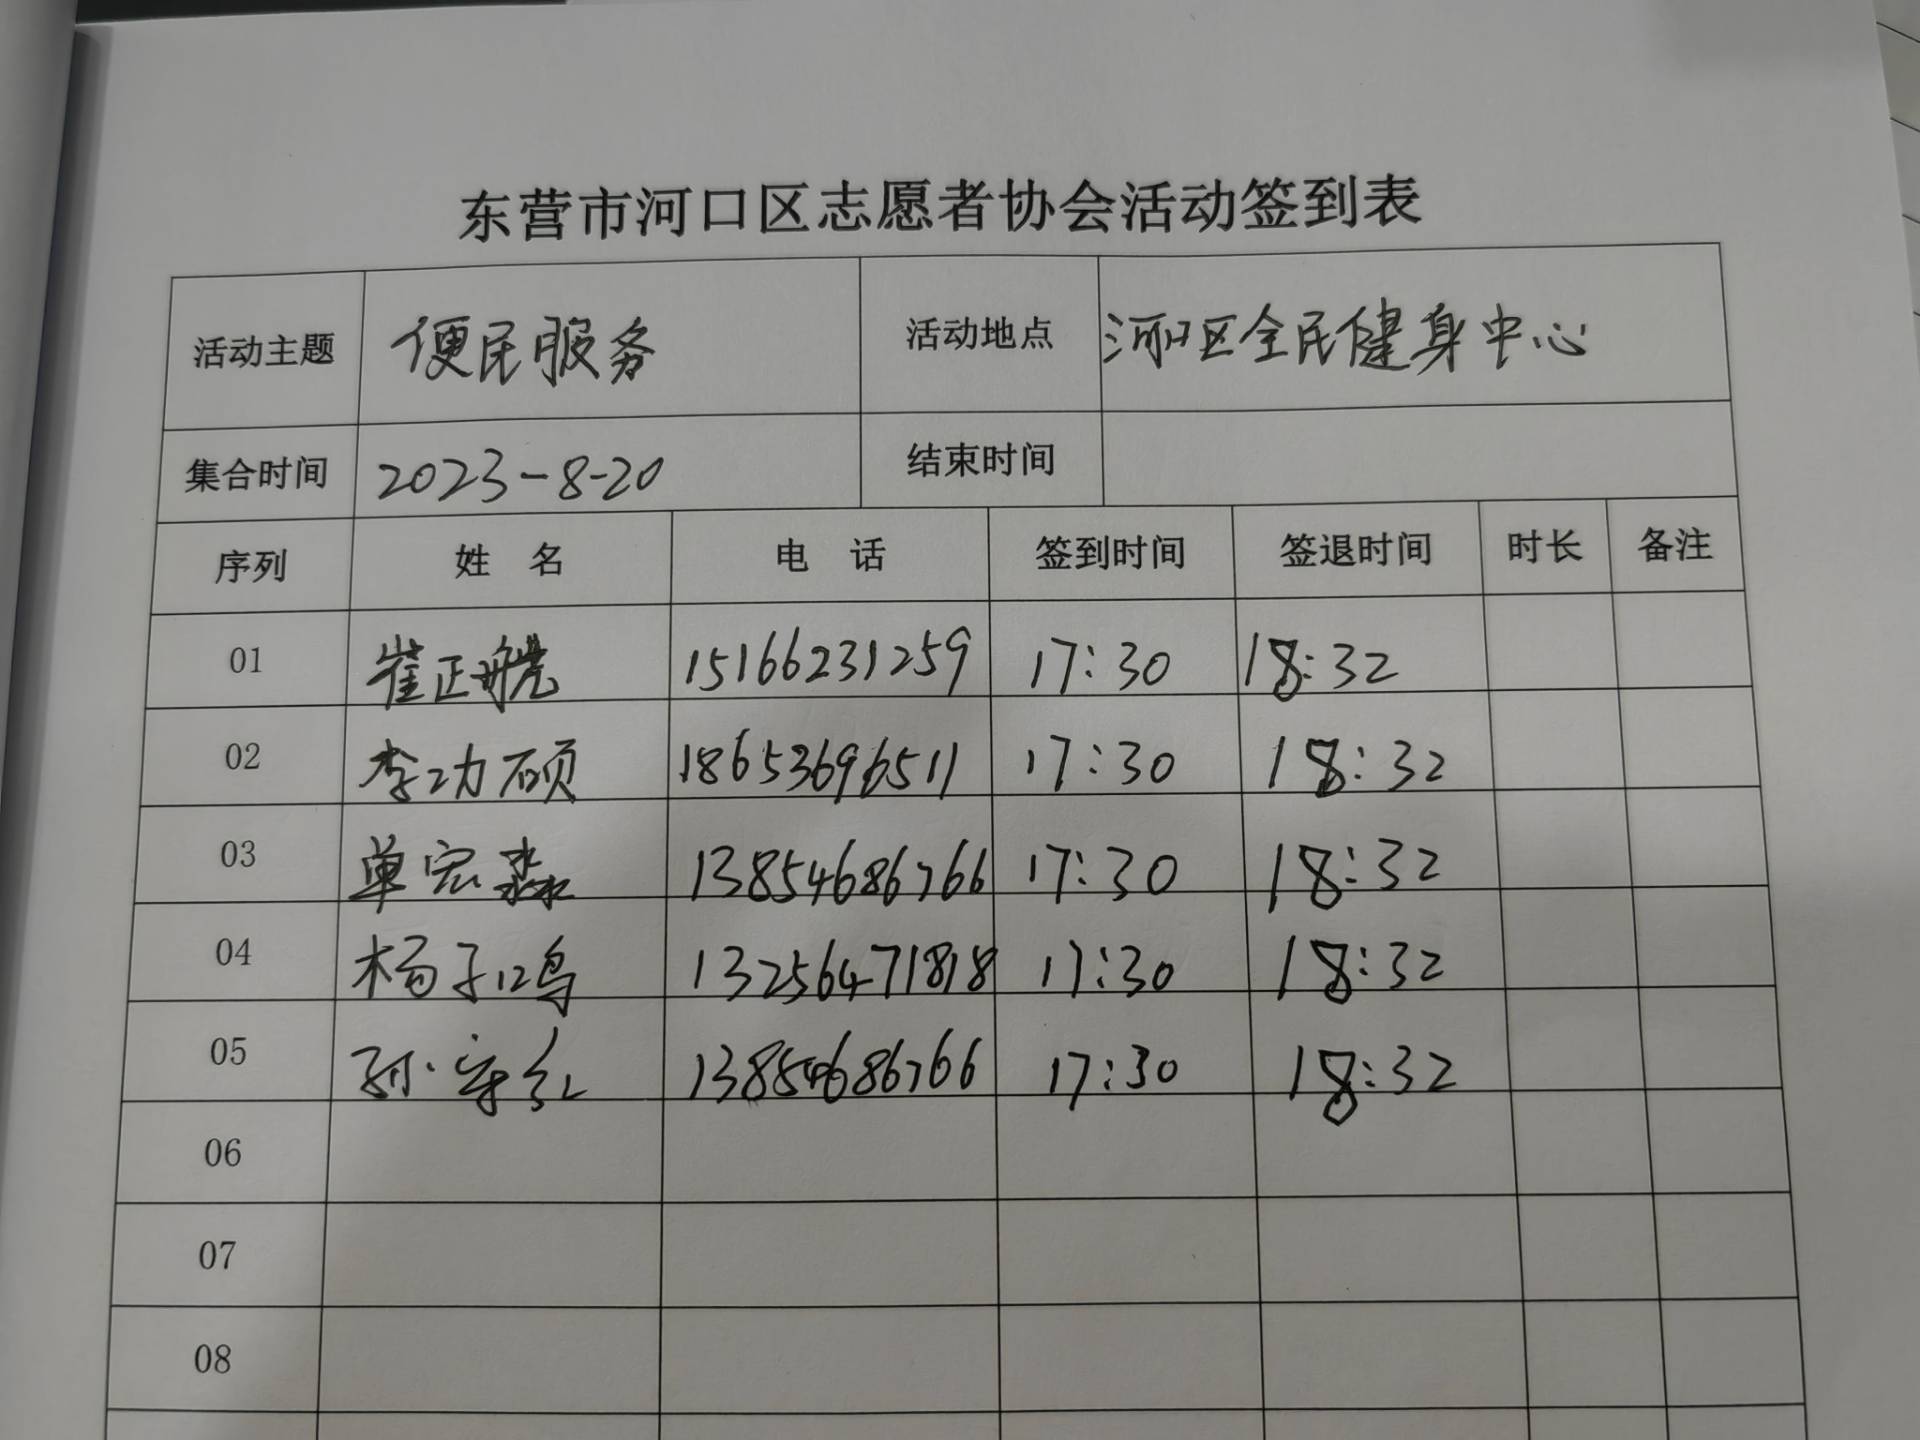 东营市河口区志愿者协会活动签到表
活动主题 便民服务 活动地点 河口区全民健身中心
集合时间 2023-8-20 结束时间
序列 姓名 电话 签到时间 签退时间 时长 备注
01 崔正 15166231259 17:30 18:32
02 李功硕 18653696511 17:30 18:32
03 单宏淼 13854686766 17:30 18:32
04 杨子鸣 13256471818 17:30 18:32
05 孙守红 13854686766 17:30 18:32
06
07
08